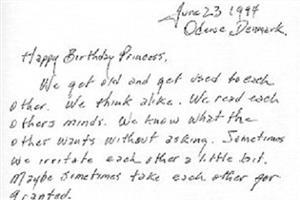 June 23 1994
Odense Denmark.
Happy Birthday Princess,
We get old and get used to each
other. We think alike. We read each
others minds. We know what the
other wants without asking. Sometimes
we irritate each other a little bit.
Maybe sometimes take each other for
granted.